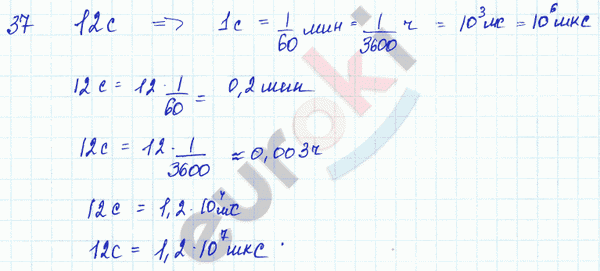 37 12с => 1с = 1/60 мин = 1/3600 ч = 10³мс = 10⁶мкс
12с = 12 · 1/60 = 0,2 мин
12с = 12 · 1/3600 ≈ 0,003ч
12с = 1,2 · 10⁴мс
12с = 1,2 · 10⁷мкс.
euroki